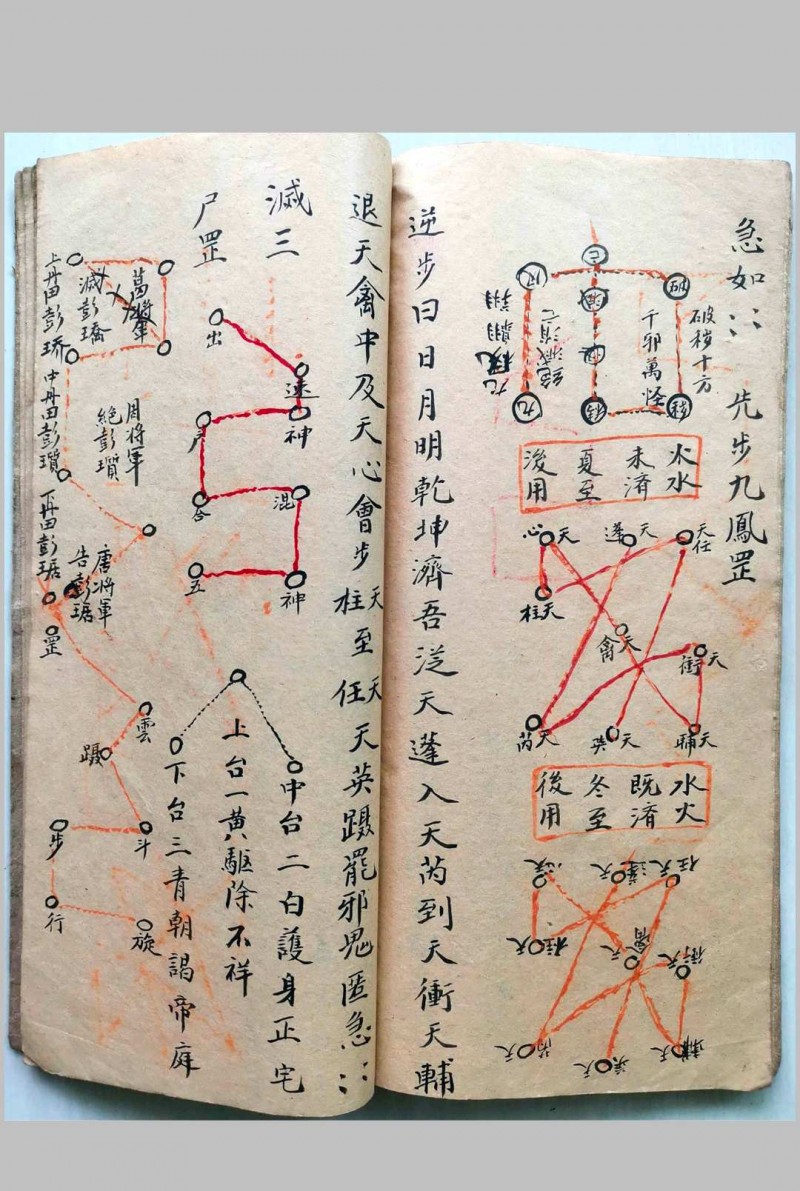 急如〻
先步九鳳罡
破穢十方
千邪萬怪
九
水火
未濟
夏至
後用
天任
天蓬
天心
天柱
天禽
天衝
天輔
天英
天芮
水火
既濟
冬至
後用
天任
天蓬
天心
天柱
天禽
天衝
天輔
天英
天芮
逆步曰日月明乾坤濟吾從天蓬入天芮到天衝天輔
退天禽中及天心會步天柱至天任天英躡罷邪鬼匿急〻
滅三
尸罡
出
速
神
尸
合
混
神
五
中台二白護身正宅
上台一黃驅除不祥
下台三青朝謁帝庭
葛將軍
滅彭瑀
周將軍
絕彭瓆
唐將軍
告彭琚
上丹田彭
中丹田彭瓆
下丹田彭琚
罡
雲
躡
斗
步
行
旋